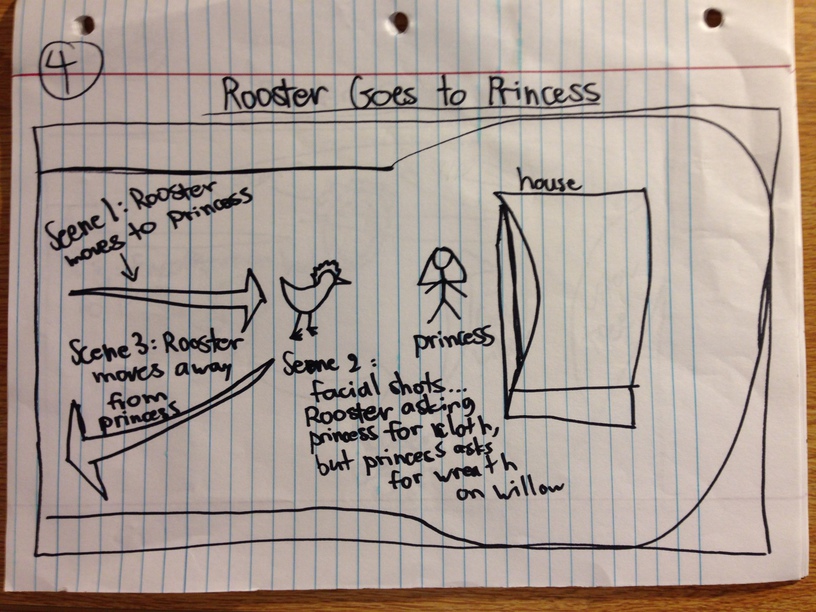 4
Rooster Goes to Princess
house
Scene 1: Rooster
moves to princess
princess
Scene 3: Rooster
moves away
from
princess
Scene 2:
facial shots...
Rooster asking
princess for cloth,
but princess asks
for wreath
on willow